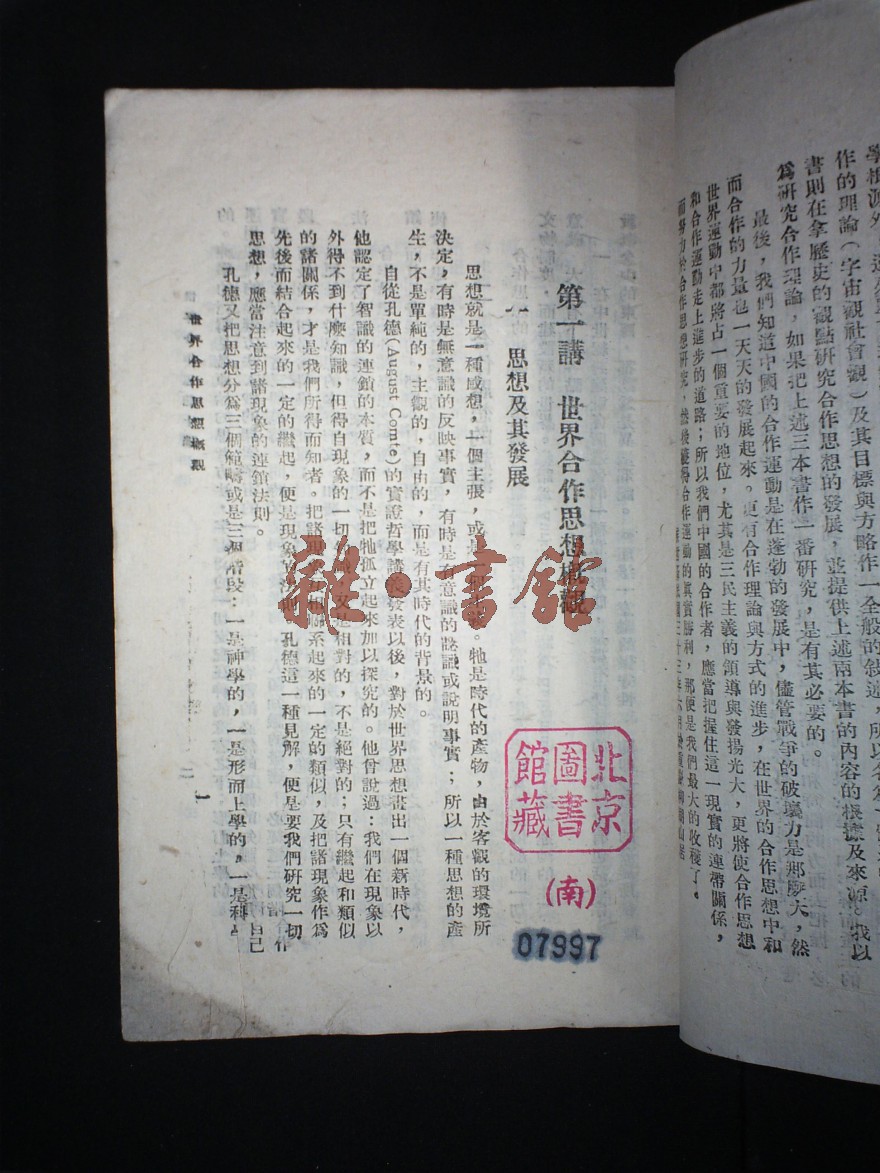 作的理論（宇宙觀社會觀）及其目標與方略作一全般的敍述，所以名爲
書則在拿歷史的觀點研究合作思想的發展，並提供上述兩本書的內容的根據及來源。我以
爲研究合作理論，如果把上述三本書作一番研究，是有其必要的。
最後，我們知道中國的合作運動是在蓬勃的發展中，儘管戰爭的破壞力是那麼大，然
而合作的力量也一天天的發展起來。更有合作理論與方式的進步，在世界的合作思想中和
世界運動中都將占一個重要的地位，尤其是三民主義的領導與發揚光大，更將使合作思想
和合作運動走上進步的道路；所以我們中國的合作者，應當把握住這一現實的連帶關係，
而努力於合作思想研究，然後獲得合作運動的真實勝利，那便是我們最大的收穫了。
第一講　世界合作思想概觀
一　思想及其發展
思想就是一種感想，一個主張，或是一個。牠是時代的產物，由於客觀的環境所
決定，有時是無意識的反映事實，有時是有意識的認識或說明事實；所以一種思想的產
生，不是單純的，主觀的，自由的，而是有其時代的背景的。
自從孔德(August Comte)的實證哲學講義發表以後，對於世界思想畫出一個新時代，
他認定了智識的連鎖的本質，而不是把牠孤立起來加以探究的。他曾說過：我們在現象以
外得不到什麼知識，但得自現象的一切，又是相對的，不是絕對的；只有繼起和類似
的諸關係，才是我們所得而知者。把諸現象互相聯系起來的一定的類似，及把諸現象作爲
先後而結合起來的一定的繼起，便是現象的法則，孔德這一種見解，便是要我們研究一切
思想，應當注意到諸現象的連鎖法則。
孔德又把思想分爲三個範疇或是三個階段：一是神學的，一是形而上學的，一是科
世界合作思想概觀
一
北京
圖書
館藏
(南)
07997
雜·書館